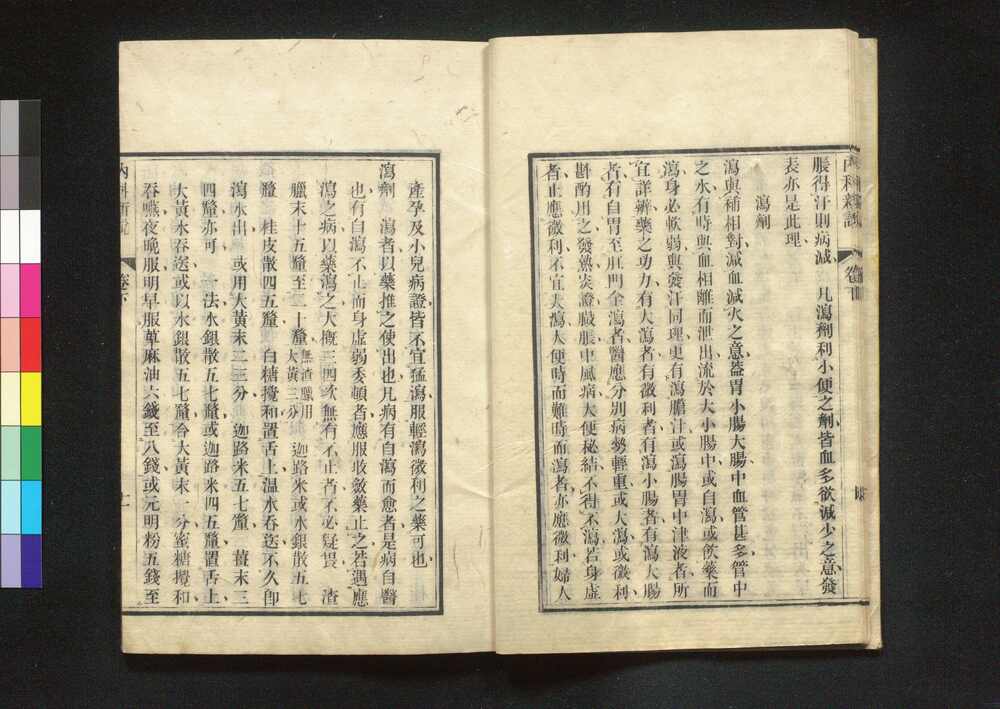 脹得汗則病減　凡瀉劑利小便之劑皆血多欲減少之意發
表亦是此理
瀉劑
瀉與補相對減血減火之意蓋胃小腸大腸中血管甚多管中
之水有時與血相離而泄出流於大小腸中或自瀉或飲藥而
瀉身必軟弱與發汗同理更有瀉膽汁或瀉腸胃中津液者所
宜詳辨藥之功力有大瀉者有微利者有瀉小腸者有瀉大腸
者有自胃至肛門全瀉者醫應分別病勢輕重或大瀉或微利
斟酌用之發熱炎證臟脹中風病大便秘結不得不瀉若身虛
者止應微利不宜大瀉大便時而難時而瀉者亦應微利婦人
產孕及小兒病證皆不宜猛瀉服輕瀉微利之藥可也
瀉劑　瀉者以藥推之使出也凡病有自瀉而愈者是病自醫
也有自瀉不止而身虛弱委頓者應服收斂藥止之若遇應
瀉之病以藥瀉之大概三四次無有不止者不必疑畏　渣
臘末十五釐至二十釐無渣臘用大黃三分　迦路米或水銀散五七
釐　桂皮散四五釐　白糖攪和置舌上溫水吞送不久即
瀉水出　或用大黃末二三分　迦路米五七釐　薑末三
四釐亦可　法水銀散五七釐或迦路米四五釐置舌上
大黃水吞送或以水銀散五七釐合大黃末一分蜜糖攪和
吞嚥夜晚服明早服萆麻油六錢至八錢或元明粉五錢至
內科新說
卷下
十一